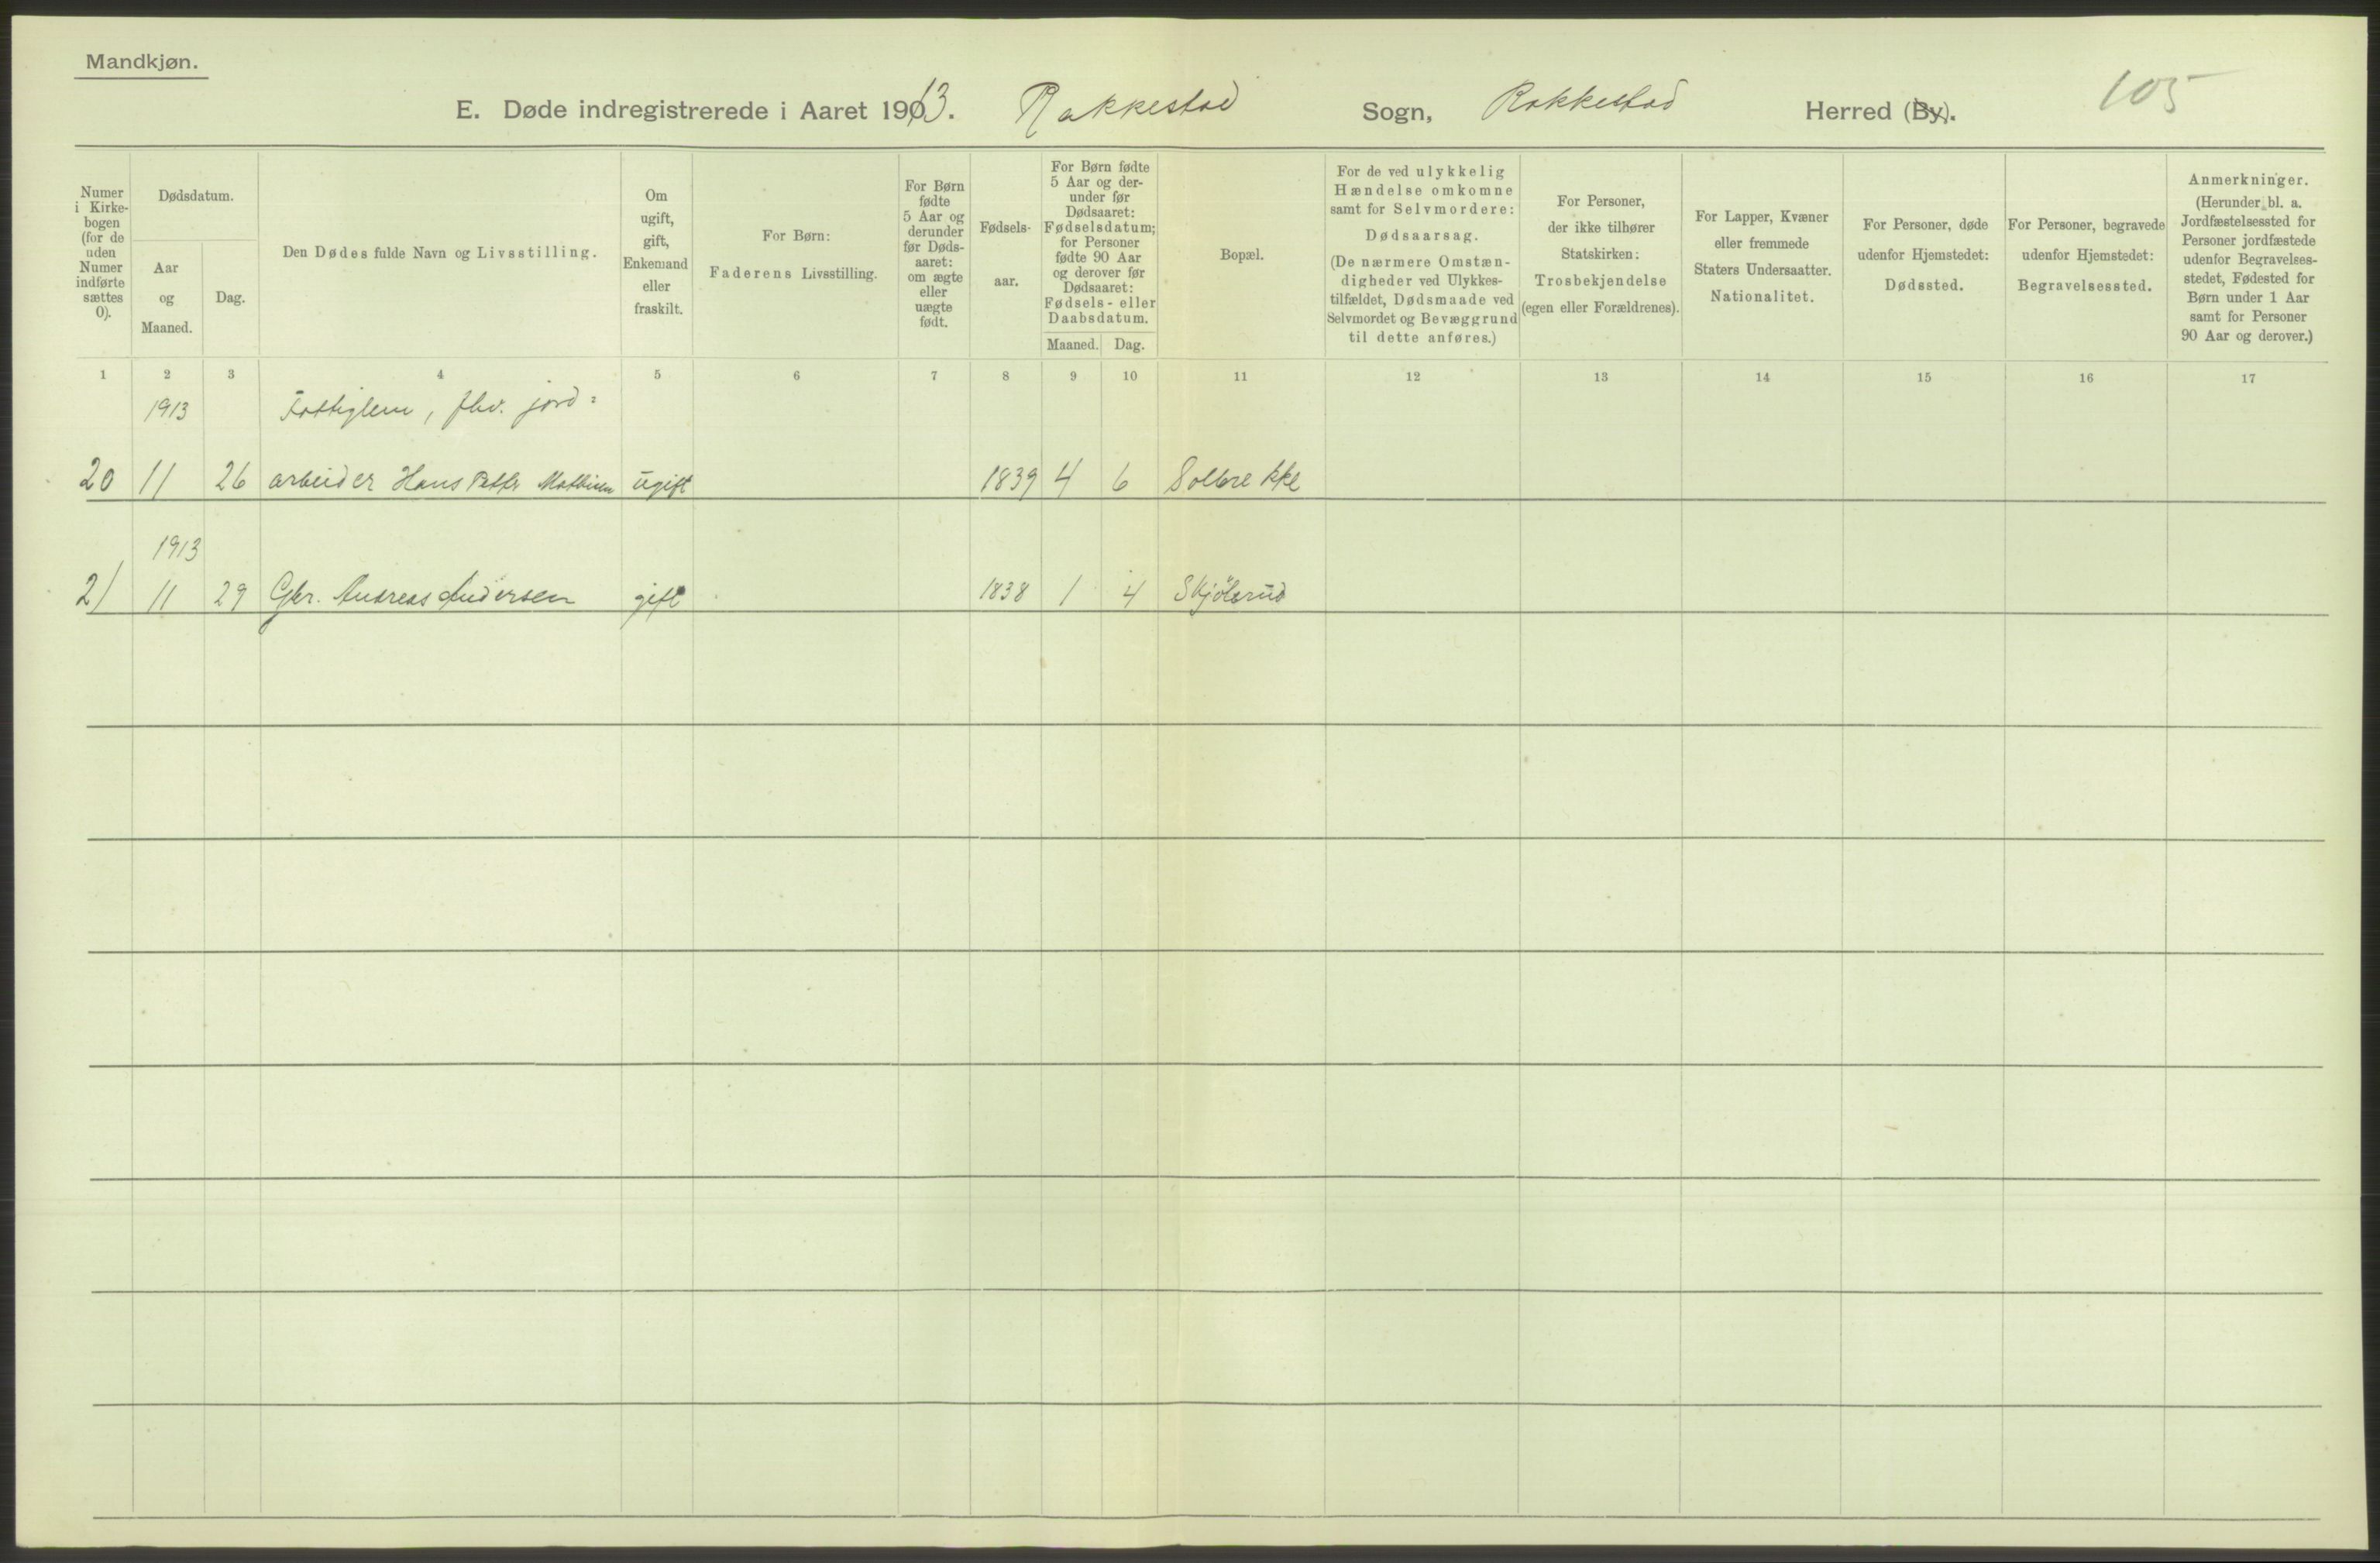 Mandkjøn.
E. Døde indregistrerede i Aaret 1913. Rakkestad Sogn, Rakkestad Herred (By). 105
Numer
i Kirke-
bogen
(for de
uden
Numer
indførte
sættes
0).
Dødsdatum.
Aar
og
Maaned.
Dag.
Den Dødes fulde Navn og Livsstilling.
Om
ugift,
gift,
Enkemand
eller
fraskilt.
For Børn:
Faderens Livsstilling.
For Børn
fødte
5 Aar og
derunder
før Døds-
aaret:
om ægte
eller
uægte
født.
Fødsels-
aar.
For Børn fødte
5 Aar og der-
under før
Dødsaaret:
Fødselsdatum;
for Personer
fødte 90 Aar
og derover før
Dødsaaret:
Fødsels- eller
Daabsdatum.
Maaned. Dag.
Bopæl.
For de ved ulykkelig
Hændelse omkomne
samt for Selvmordere:
Dødsaarsag.
(De nærmere Omstæn-
digheder ved Ulykkes-
tilfældet, Dødsmaade ved
Selvmordet og Bevæggrund
til dette anføres.)
For Personer,
der ikke tilhører
Statskirken:
Trosbekjendelse
(egen eller Forældrenes).
For Lapper, Kvæner
eller fremmede
Staters Undersaatter.
Nationalitet.
For Personer, døde
udenfor Hjemstedet:
Dødssted.
For Personer, begravede
udenfor Hjemstedet:
Begravelsessted.
Anmerkninger.
(Herunder bl. a.
Jordfæstelsessted for
Personer jordfæstede
udenfor Begravelses-
stedet, Fødested for
Børn under 1 Aar
samt for Personer
90 Aar og derover.)
1 2 3 4 5 6 7 8 9 10 11 12 13 14 15 16 17
1913 Fattiglem, fhv. jord=
20 11 26 arbeider Hans Petter ugift 1839 4 6 Solbrekke
1913
21 11 29 Gbr. Andreas Andersen gift 1838 1 4